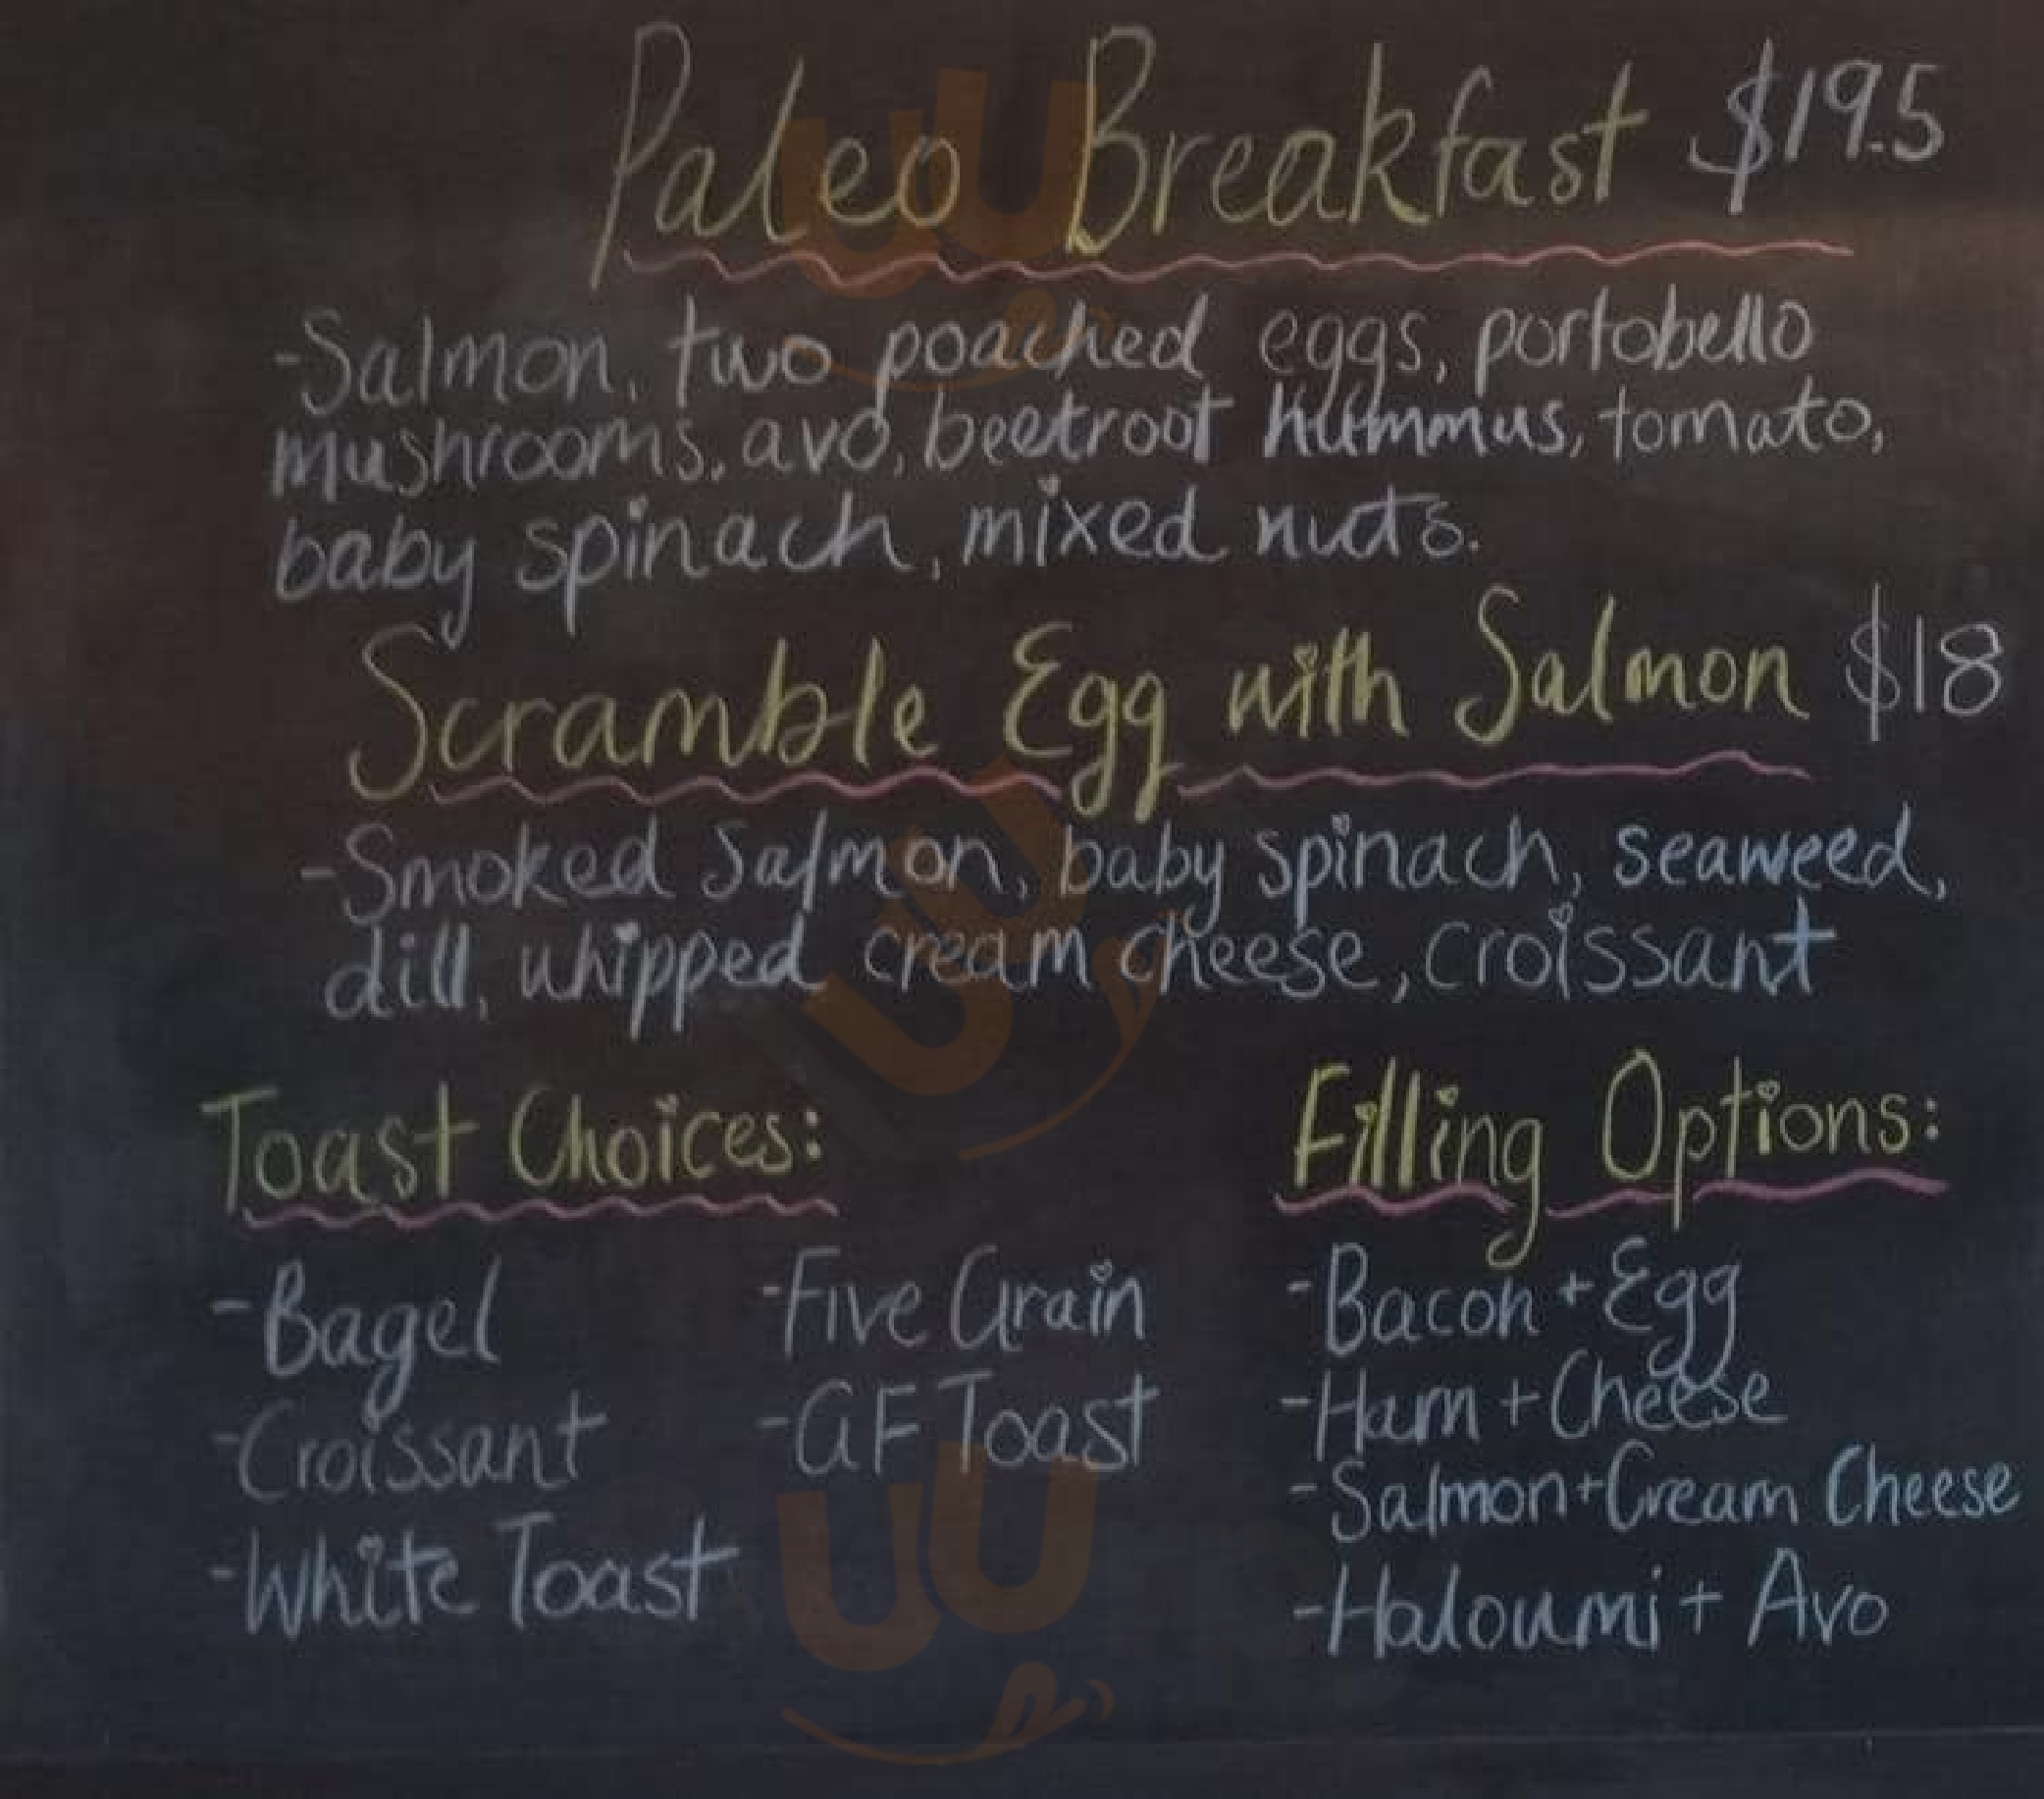 Paleo Breakfast $19.5
-Salmon, two poached eggs, portobello
mushrooms, avo, beetroot hummus, tomato,
baby spinach, mixed nuts.
Scramble Egg with Salmon $18
-Smoked Salmon, baby spinach, seaweed,
dill, whipped cream cheese, croissant
Toast Choices:
-Bagel
-Croissant
-White Toast
-Five Grain
-GF Toast
Filling Options:
-Bacon + Egg
-Ham + Cheese
-Salmon + Cream Cheese
-Haloumi + Avo